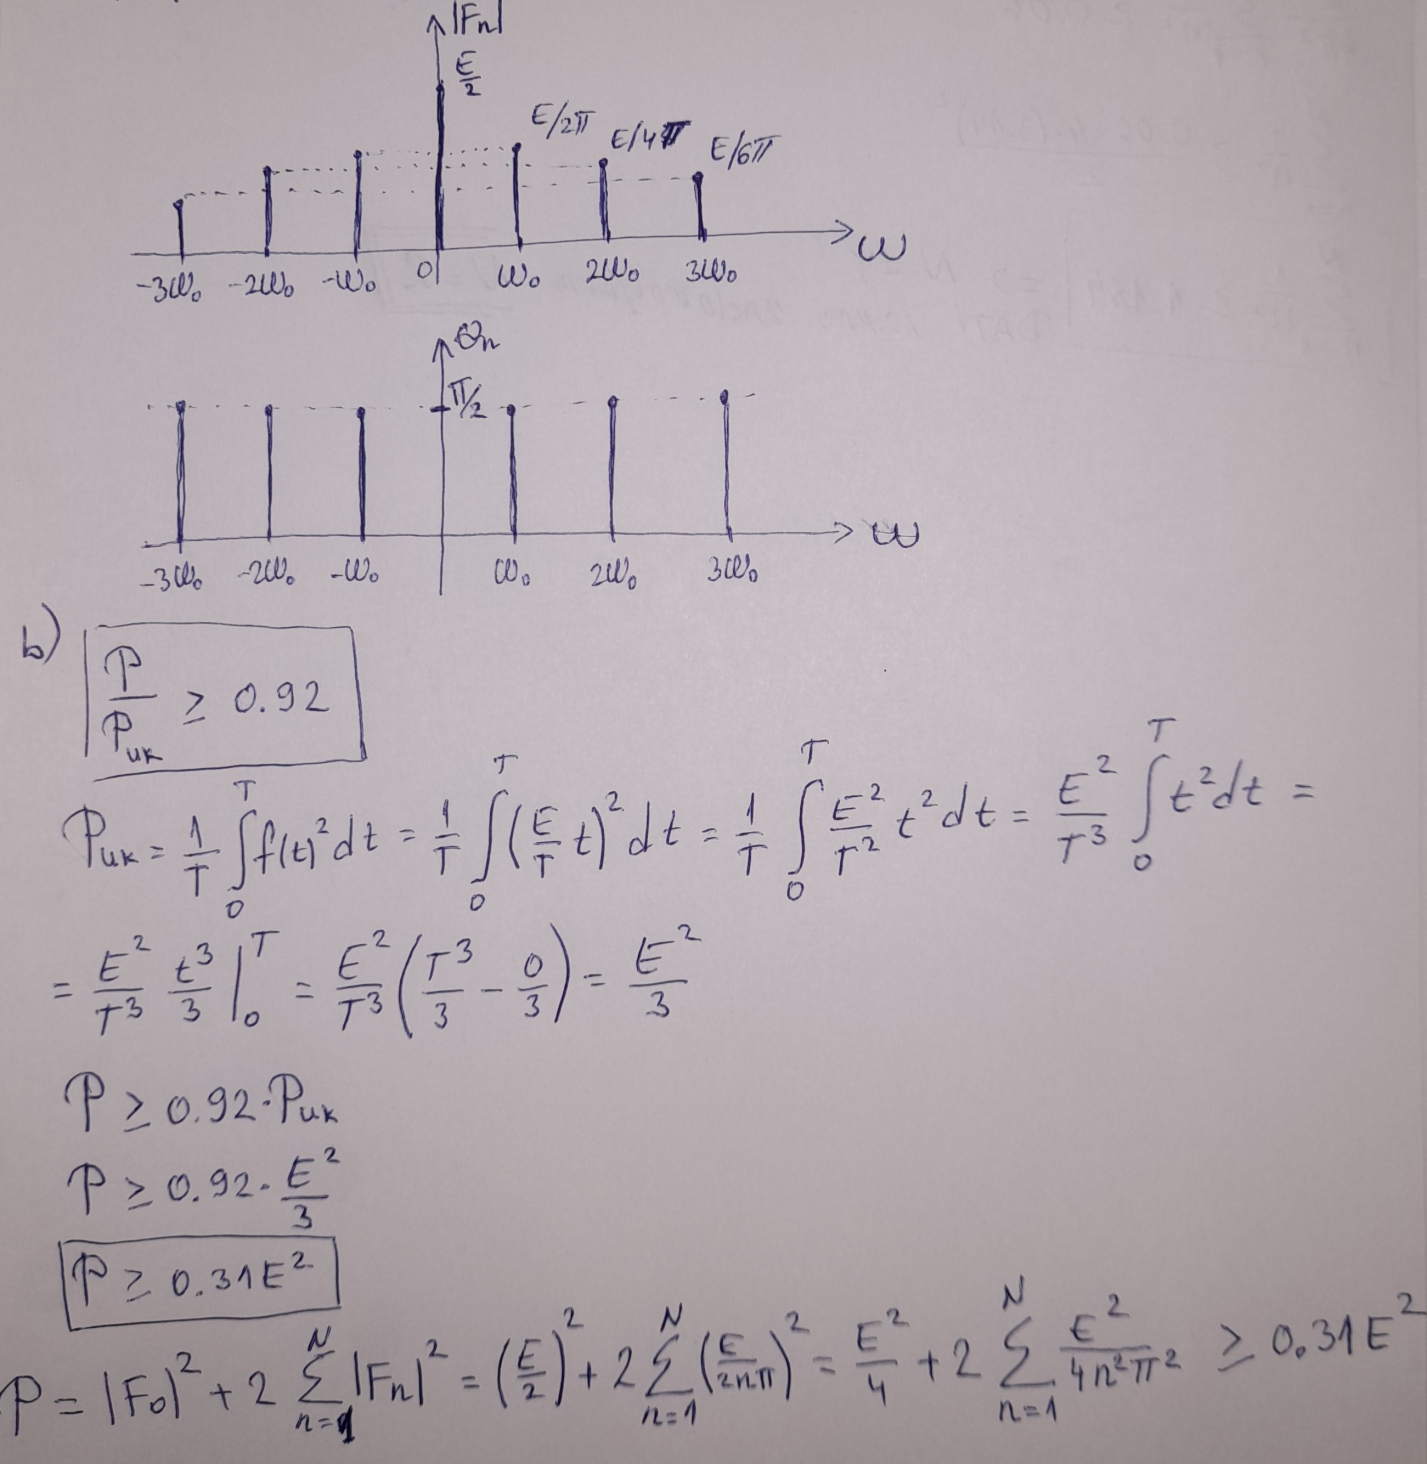 |Fn|
E/2
E/2π
E/4π
E/6π
-3ω₀ -2ω₀ -ω₀ 0 ω₀ 2ω₀ 3ω₀ ω
Θn
π/2
-3ω₀ -2ω₀ -ω₀ ω₀ 2ω₀ 3ω₀ ω
b) P/Puk ≥ 0.92
Puk = 1/T ∫₀ᵀ f(t)² dt = 1/T ∫₀ᵀ (E/T t)² dt = 1/T ∫₀ᵀ E²/T² t² dt = E²/T³ ∫₀ᵀ t² dt =
= E²/T³ t³/3 |₀ᵀ = E²/T³ (T³/3 - 0/3) = E²/3
P ≥ 0.92·Puk
P ≥ 0.92·E²/3
P ≥ 0.31E²
P = |F₀|² + 2 Σₙ₌₁ᴺ |Fn|² = (E/2)² + 2 Σₙ₌₁ᴺ (E/2nπ)² = E²/4 + 2 Σₙ₌₁ᴺ E²/4n²π² ≥ 0.31E²